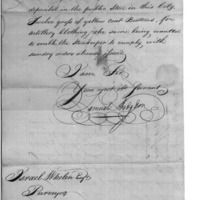 deposited in the public Store in this City
Twelve groce of yellow Coat Buttons, for
artillery cloathing, the same being wanted
to enable the Storekeeper to comply with
sundry orders already
I am Sir
Your most ob Servant
Samuel Hodgdon
Israel Whelen Esqr
Purveyor